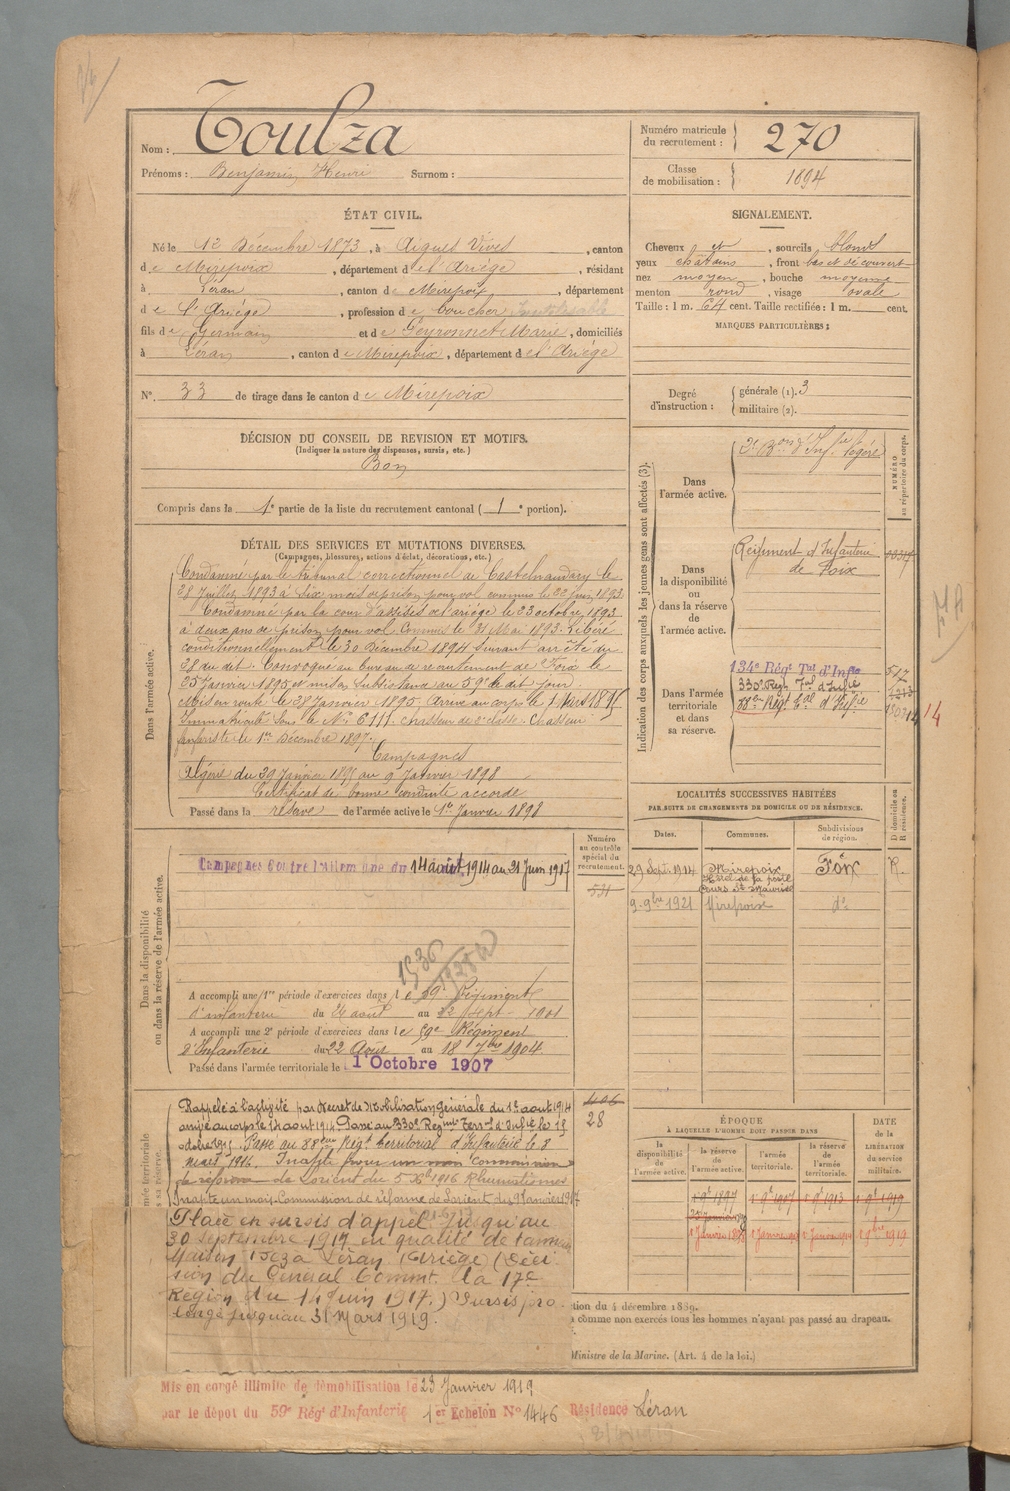 Nom : Toulza
Prénoms : Benjamin Henri Surnom :
Numéro matricule du recrutement : 270
Classe de mobilisation : 1894
ÉTAT CIVIL.
Né le 12 Décembre 1873, à Aigues Vives, canton
de Mirepoix, département de l'Ariége, résidant
à Léran, canton de Mirepoix, département
de l'Ariége, profession de boucher
fils de Germain et de Peyronnet Marie, domiciliés
à Léran, canton de Mirepoix, département de l'Ariége
N° 33 de tirage dans le canton de Mirepoix
SIGNALEMENT.
Cheveux et, sourcils blonds
yeux chatains, front bas et découvert
nez moyen, bouche moyenne
menton rond, visage ovale
Taille : 1 m. 64 cent. Taille rectifiée : 1 m. cent.
MARQUES PARTICULIÈRES :
Degré d'instruction : générale (1). 3
militaire (2).
DÉCISION DU CONSEIL DE REVISION ET MOTIFS.
(Indiquer la nature des dispenses, sursis, etc.)
Bon
Compris dans la 1e partie de la liste du recrutement cantonal (1e portion).
DÉTAIL DES SERVICES ET MUTATIONS DIVERSES.
(Campagnes, blessures, actions d'éclat, décorations, etc.)
Dans l'armée active.
Condamné par le tribunal correctionnel de Castelnaudary le
28 Juillet 1893 à Six mois de prison pour vol commis le 22 juin 1893.
Condamné par la cour d'assises de l'ariége le 23 octobre 1893
à deux ans de prison pour vol Commis le 31 Mai 1893. Libéré
conditionnellement le 30 Décembre 1894 Suivant arrêté du
28 du dit. Convoqué au bureau de recrutement de Foix le
25 Janvier 1895 et mis en Subsistance au 59e de dit jour
Mis en route le 28 Janvier 1895. Arrivé au corps le
Immatriculé Sous le N° 6111. Chasseur de 2e classe. Chasseur
le 1er Décembre 1897.
Campagnes
Algérie du 29 Janvier 1895 au 9 Janvier 1898
Certificat de bonne conduite accordé
Passé dans la réserve de l'armée active le 1er Janvier 1898
Indication des corps auxquels les jeunes gens sont affectés (3).
NUMÉRO au répertoire du corps.
Dans l'armée active.
2e Bon d'Inf.ie légère
Dans la disponibilité ou dans la réserve de l'armée active.
Régiment d'Infanterie
de Foix
Dans l'armée territoriale et dans sa réserve.
134e Régt Tal d'Infie 517
330e Régt Tal d'Infie
88e Régt Tal d'Infie
14
LOCALITÉS SUCCESSIVES HABITÉES
PAR SUITE DE CHANGEMENTS DE DOMICILE OU DE RÉSIDENCE.
Dates. Communes. Subdivisions de région. D domicile ou R résidence.
29 Sept. 1914 Mirepoix Foix R.
Hôtel de la poste
Cours St Maurice
9 9bre 1921 Mirepoix do
Dans la disponibilité ou dans la réserve de l'armée active.
Numéro au contrôle spécial du recrutement.
531
Campagnes Contre l'Allemagne du 14 août 1914 au 21 Juin 1917
1936
A accompli une 1re période d'exercices dans le 59e Régiment
d'infanterie du 26 août au 22 Sept 1901
A accompli une 2e période d'exercices dans le 59e Régiment
d'Infanterie du 22 Août au 18 7bre 1904
Passé dans l'armée territoriale le 1 Octobre 1907
406
28
Rappelé à l'activité par décret de Mobilisation Générale du 1er aout 1914
arrivé au corps le 14 aout 1914 Passé au 330e Regiment Terral d'Infie le 15
octobre 1915. Passé au 88eme Régt territorial d'Infanterie le 8
1916. Inapte pour un mois commission
de réforme de Lorient du 5 Xbre 1916 Rhumatismes
Inapte un mois. Commission de réforme de Lorient du 9 Janvier 1917
Placé en sursis d'appel jusqu'au
30 septembre 1917 en qualité de
Maison à Léran (Ariège) (Déci
sion du Général Commt. la 17e
Région du 14 Juin 1917.) Sursis pro-
longé jusqu'au 31 Mars 1919.
ÉPOQUE
À LAQUELLE L'HOMME DOIT PASSER DANS
la disponibilité de l'armée active. la réserve de l'armée active. l'armée territoriale. la réserve de l'armée territoriale.
DATE de la LIBÉRATION du service militaire.
1 9bre 1897 1 9bre 1907 1 9bre 1913 1 9bre 1919
tion du 4 décembre 1889.
à comme non exercés tous les hommes n'ayant pas passé au drapeau.
Ministre de la Marine. (Art. 4 de la loi.)
Mis en congé illimité de démobilisation le 23 Janvier 1919
par le dépot du 59e Régt d'Infanterie 1er Echelon N° 1446 Résidence Léran